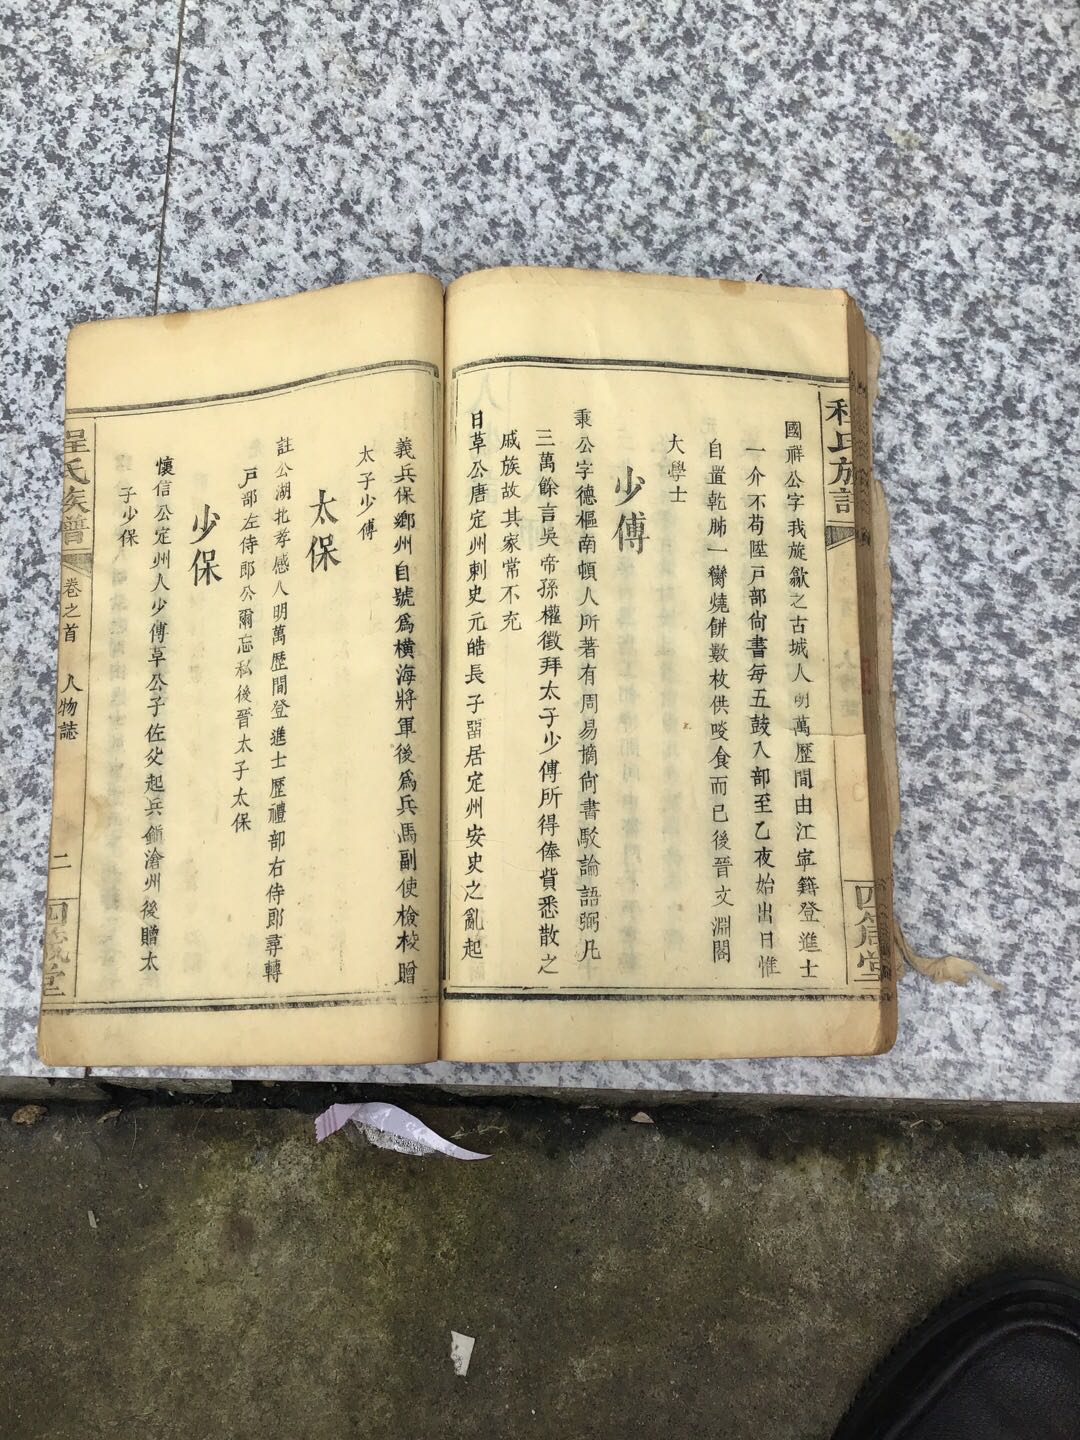 程氏族譜
四箴堂
國祥公字我旋歙之古城人明萬歷間由江寧籍登進士
一介不苟陞戸部尙書每五鼓入部至乙夜始出日惟
自置乾肺一臠燒餅數枚供啖食而已後晉文淵閣
大學士
少傅
秉公字德樞南頓人所著有周易摘尙書駁論語弼凡
三萬餘言吳帝孫權徵拜太子少傅所得俸貲悉散之
戚族故其家常不充
日草公唐定州刺史元皓長子畱居定州安史之亂起
義兵保鄉州自號爲橫海將軍後爲兵馬副使檢校贈
太子少傅
太保
註公湖北孝感人明萬歷間登進士歷禮部右侍郎尋轉
戸部左侍郎公爾忘私後晉太子太保
少保
懷信公定州人少傅草公子佐父起兵鎭滄州後贈太
子少保
程氏族譜
卷之首
人物誌
二
四箴堂